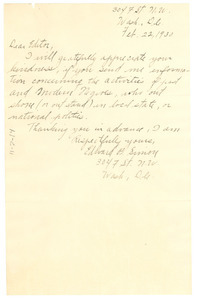 3047 St. N.W.
Wash, D.C.
Feb. 22, 1931
Dear Editor,
I will gratefully appreciate your
kindness, if you send me informa-
tion concerning the activities of past
and Modern Negroes, who out
shone (or out stand) in local state, or
national politics.
Thanking you in advance, I am
Respectfully yours,
Edward B. Simon
3047 St. N.W.
Wash, D.C.